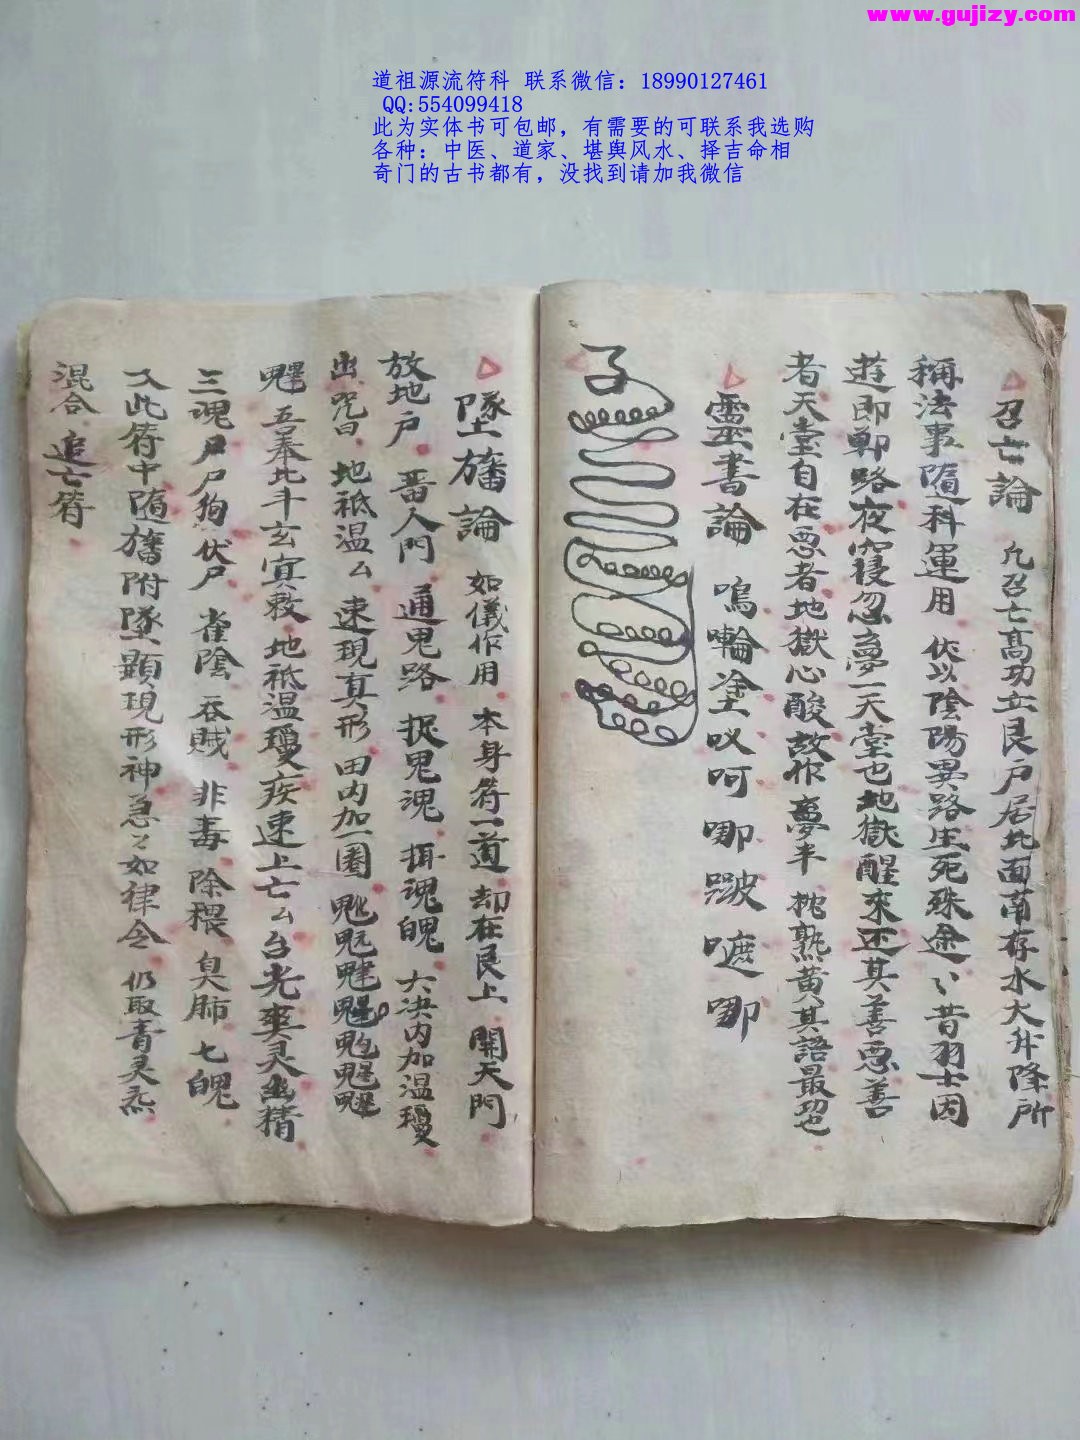 www.gujizy.com
道祖源流符科 联系微信：18990127461
QQ:554099418
此为实体书可包邮，有需要的可联系我选购
各种：中医、道家、堪舆风水、择吉命相
奇门的古书都有，没找到请加我微信
召亡論 凢召亡高功立艮戸居北面南存水火升降所
稱法事隨科運用 伏以陰陽異路生死殊途 昔羽士因
遊即鄴路夜寝忽夢一天堂也地獄醒來还其善恶善
者天堂自在恶者地獄心酸故作夢半 枕熟黄其語最功也
靈書論 嗚輪塗哎呵哪跛嗻哪
墜旛論 如儀作用 本身符一道却在艮上 開天門
放地户 畨人門 通鬼路 捉鬼魂 拜魂魄 六决内加温瓊
出咒曰 地祇温厶 速現真形 田内加一圏
吾奉北斗玄冥敕 地祇温瓊疾速上亡厶台光爽灵幽精
三魂尸尸狗伏尸 雀陰吞賊 非毒 除穢 臭肺 七魄
入此符中隨旛附墜顕現形神急々如律令 仍取青灵炁
混合 追亡符